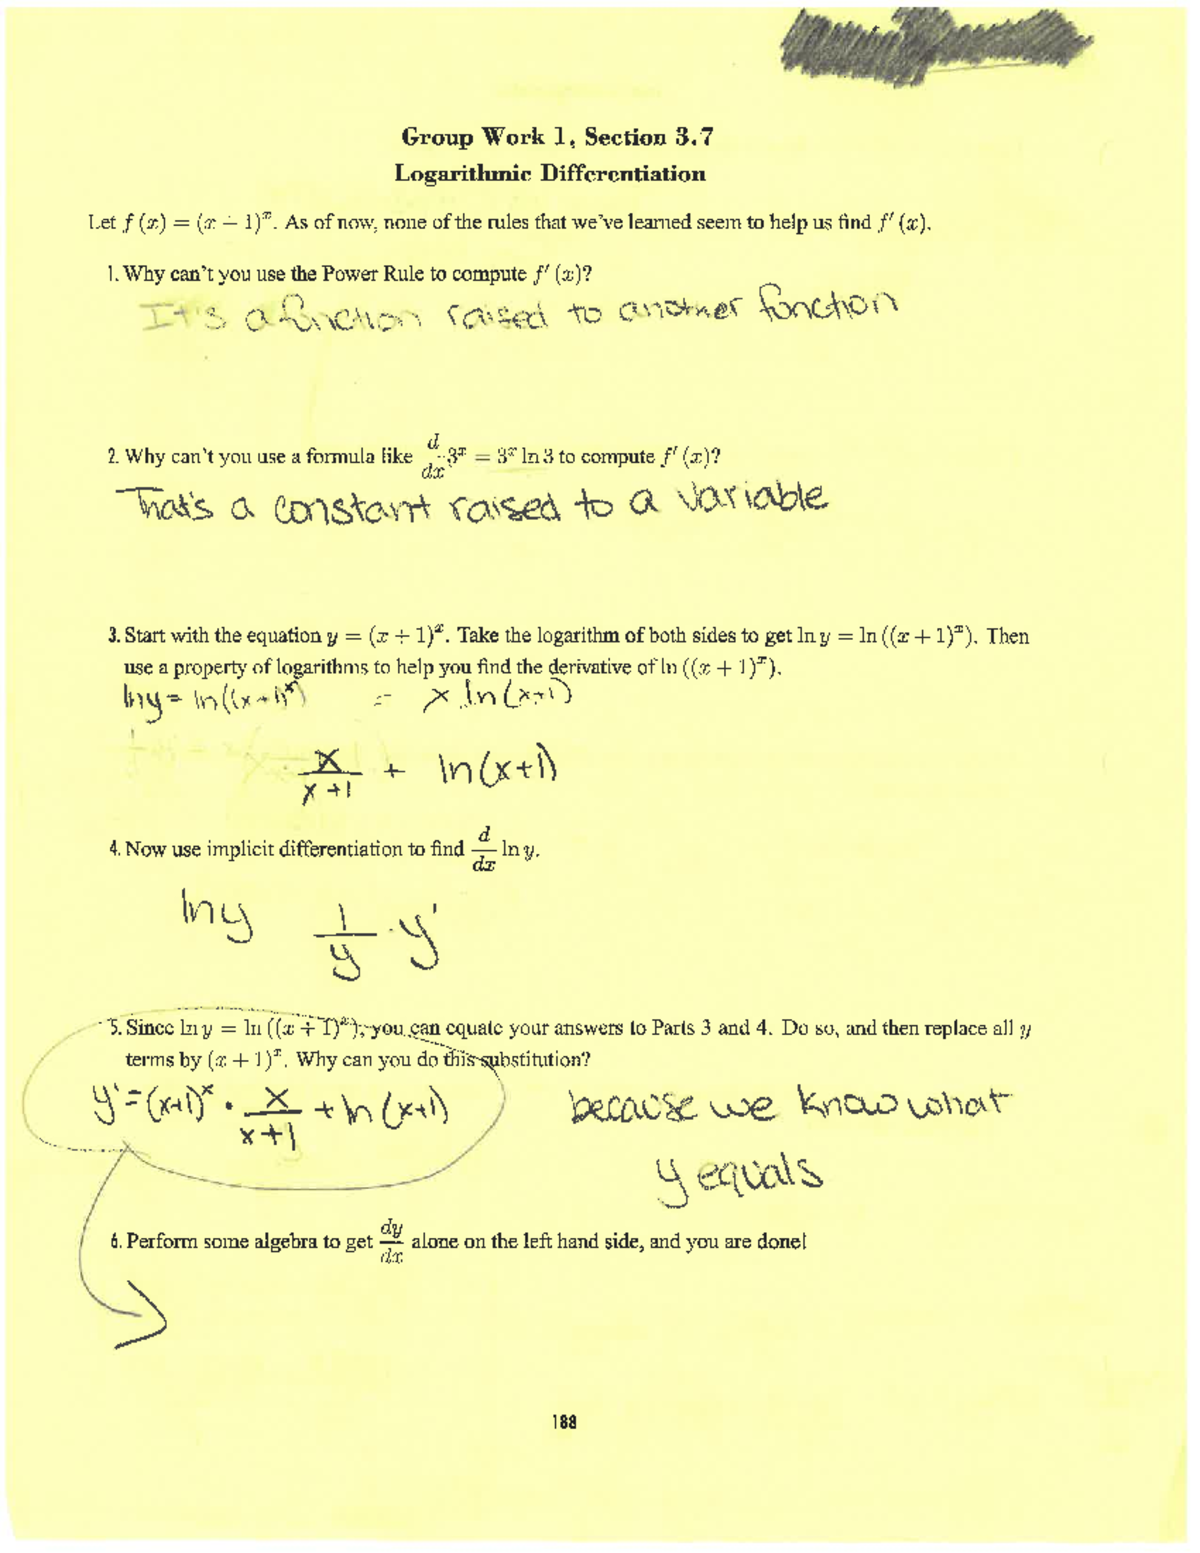 Group Work 1, Section 3.7
Logarithmic Differentiation
Let f (x) = (x + 1)^x. As of now, none of the rules that we've learned seem to help us find f′ (x).
1. Why can't you use the Power Rule to compute f′ (x)?
It's a function raised to another function
2. Why can't you use a formula like d/dx 3^x = 3^x ln 3 to compute f′ (x)?
That's a constant raised to a variable
3. Start with the equation y = (x + 1)^x. Take the logarithm of both sides to get ln y = ln ((x + 1)^x). Then
use a property of logarithms to help you find the derivative of ln ((x + 1)^x).
ln y = ln((x+1)^x) = x ln(x+1)
x/(x+1) + ln(x+1)
4. Now use implicit differentiation to find d/dx ln y.
ln y 1/y · y'
5. Since ln y = ln ((x + 1)^x), you can equate your answers to Parts 3 and 4. Do so, and then replace all y
terms by (x + 1)^x. Why can you do this substitution?
y' = (x+1)^x · x/(x+1) + ln (x+1) because we know what
y equals
6. Perform some algebra to get dy/dx alone on the left hand side, and you are done!
188